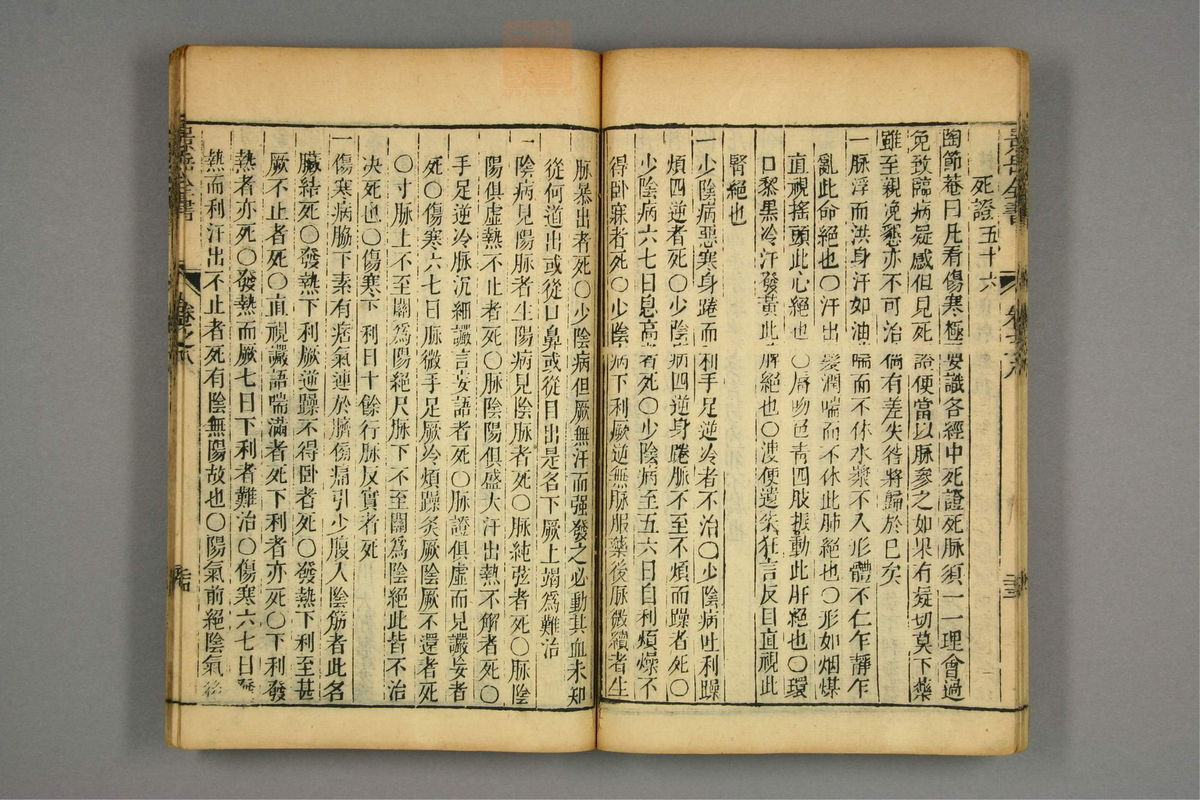 死證五十六
陶節菴曰凡看傷寒極要識各經中死證死脉須一一理會過
免致臨病疑惑但見死證便當以脉參之如果有疑切莫下藥
雖至親浼懇亦不可治倘有差失咎將歸於已矣
一脉浮而洪身汗如油喘而不休水漿不入形體不仁乍靜乍
亂此命絕也〇汗出髮潤喘而不休此肺絕也〇形如烟煤
直視搖頭此心絕也〇唇吻色青四肢振動此肝絕也〇環
口黎黑冷汗發黃此脾絕也〇溲便遺失狂言反目直視此
腎絕也
一少陰病惡寒身踡而利手足逆冷者不治〇少陰病吐利躁
煩四逆者死〇少陰病四逆身踡脉不至不煩而躁者死〇
少陰病六七日息高者死〇少陰病至五六日自利煩燥不
得卧寐者死〇少陰病下利厥逆無脉服藥後脉微續者生
脉暴出者死〇少陰病但厥無汗而强發之必動其血未知
從何道出或從口鼻或從目出是名下厥上竭爲難治
一陰病見陽脉者生陽病見陰脉者死〇脉純弦者死〇脉陰
陽俱虛熱不止者死〇脉陰陽俱盛大汗出熱不解者死〇
手足逆冷脉沉細讝言妄語者死〇脉證俱虛而見讝妄者
死〇傷寒六七日脉微手足厥冷煩躁炙厥陰厥不還者死
〇寸脉上不至關爲陽絕尺脉下不至關爲陰絕此皆不治
决死也〇傷寒下利日十餘行脉反實者死
一傷寒病脇下素有痞氣連於臍傷痛引少腹入陰筋者此名
臟結死〇發熱下利厥逆躁不得卧者死〇發熱下利至甚
厥不止者死〇直視讝語喘滿者死下利者亦死〇下利發
熱者亦死〇發熱而厥七日下利者難治〇傷寒六七日發
熱而利汗出不止者死有陰無陽故也〇陽氣前絕陰氣後
景岳全書
卷之八